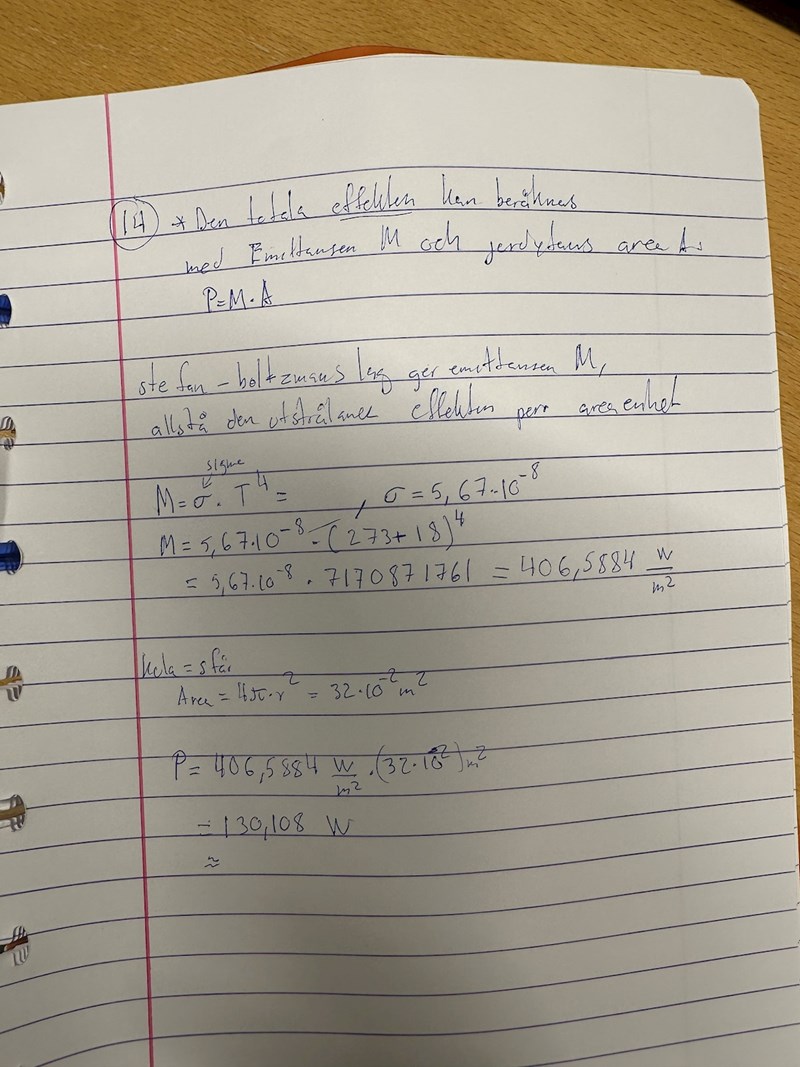 14 * Den totala effekten kan beräknas
med Emittansen M och jordytans area A.
P=M·A
stefan-boltzmans lag ger emittansen M,
alltså den utstrålance effekten perr areaenhet
sigma
M=σ·T⁴= , σ=5,67·10⁻⁸
M=5,67·10⁻⁸·(273+18)⁴
= 5,67·10⁻⁸ · 7170871761 = 406,5884 W/m²
Kula = sfär
Area = 4π·r² = 32·10⁻² m²
P= 406,5884 W/m² ·(32·10⁻²)m²
= 130,108 W
≈